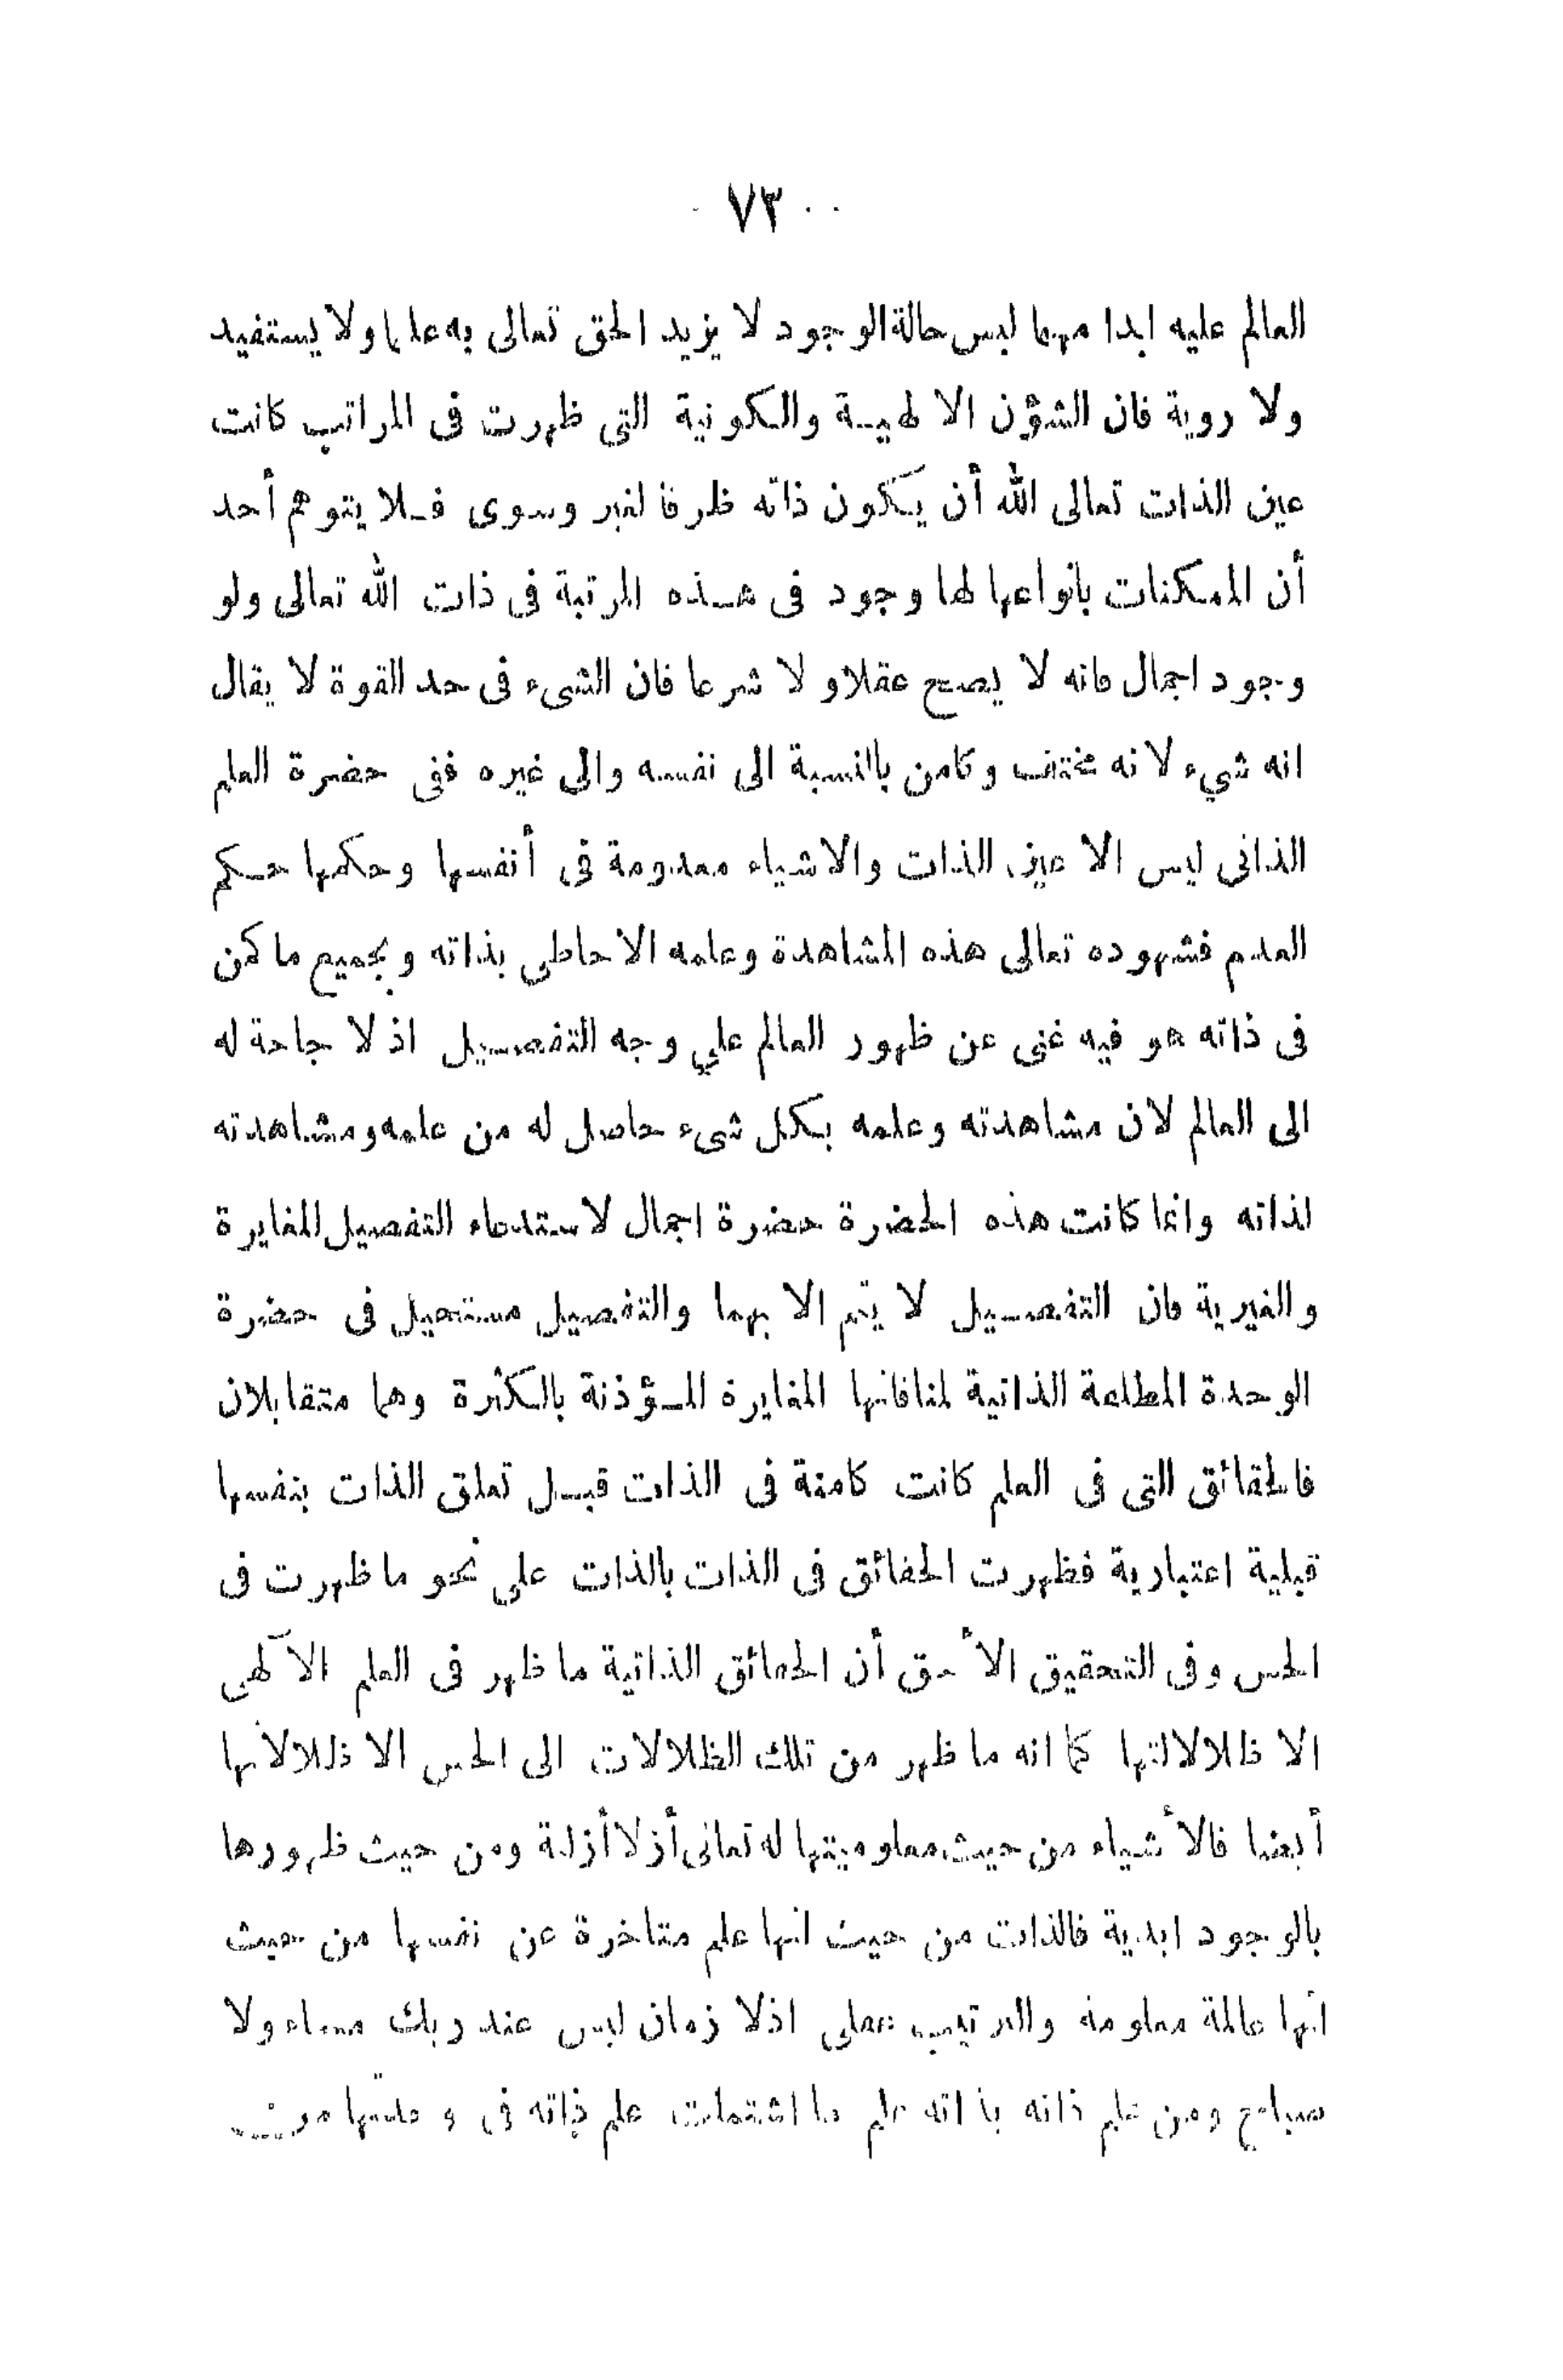 ٧٣
العالم عليه ابدا مهما لبس حالة الوجود لا يزيد الحق تعالى به علما ولا يستفيد
ولا روية فان الشؤن الالهية والكونية التي ظهرت في المراتب كانت
عين الذات تعالى الله أن يكون ذاته ظرفا لغير وسوى فلا يتوهم أحد
أن الممكنات بانواعها لها وجود فى هذه المرتبة فى ذات الله تعالى ولو
وجود اجمال فانه لا يصح عقلا ولا شرعا فان الشىء فى حد القوة لا يقال
انه شيء لانه مختف وكامن بالنسبة الى نفسه والى غيره ففى حضرة العلم
الذاتى ليس الا عين الذات والاشياء معدومة فى أنفسها وحكمها حكم
العدم فشهوده تعالى هذه المشاهدة وعلمه الاحاطى بذاته وبجميع ما كمن
فى ذاته هو فيه غنى عن ظهور العالم علي وجه التفصيل اذ لا حاجة له
الى العالم لان مشاهدته وعلمه بكل شىء حاصل له من علمه ومشاهدته
لذاته وانما كانت هذه الحضرة حضرة اجمال لاستدعاء التفصيل المغايرة
والغيرية فان التفصيل لا يتم الا بهما والتفصيل مستحيل فى حضرة
الوحدة المطلقة الذاتية لمنافاتها المغايرة المؤذنة بالكثرة وهما متقابلان
فالحقائق التى فى العلم كانت كامنة فى الذات قبل تعلق الذات بنفسها
قبلية اعتبارية فظهرت الحقائق فى الذات بالذات علي نحو ما ظهرت فى
الحس وفى التحقيق الأحق أن الحقائق الذاتية ما ظهر فى العلم الآلهى
الا ظلالالتها كما انه ما ظهر من تلك الظلالات الى الحس الا ظلالاتها
أيضا فالأشياء من حيث معلوميتها له تعالى أزلا أزلية ومن حيث ظهورها
بالوجود ابدية فالذات من حيث انها علم متاخرة عن نفسها من حيث
انها عالمة معلومة والترتيب عقلى اذلا زمان ليس عند ربك مساء ولا
صباح ومن علم ذاته بذاته علم ما اشتملت علم ذاته فى